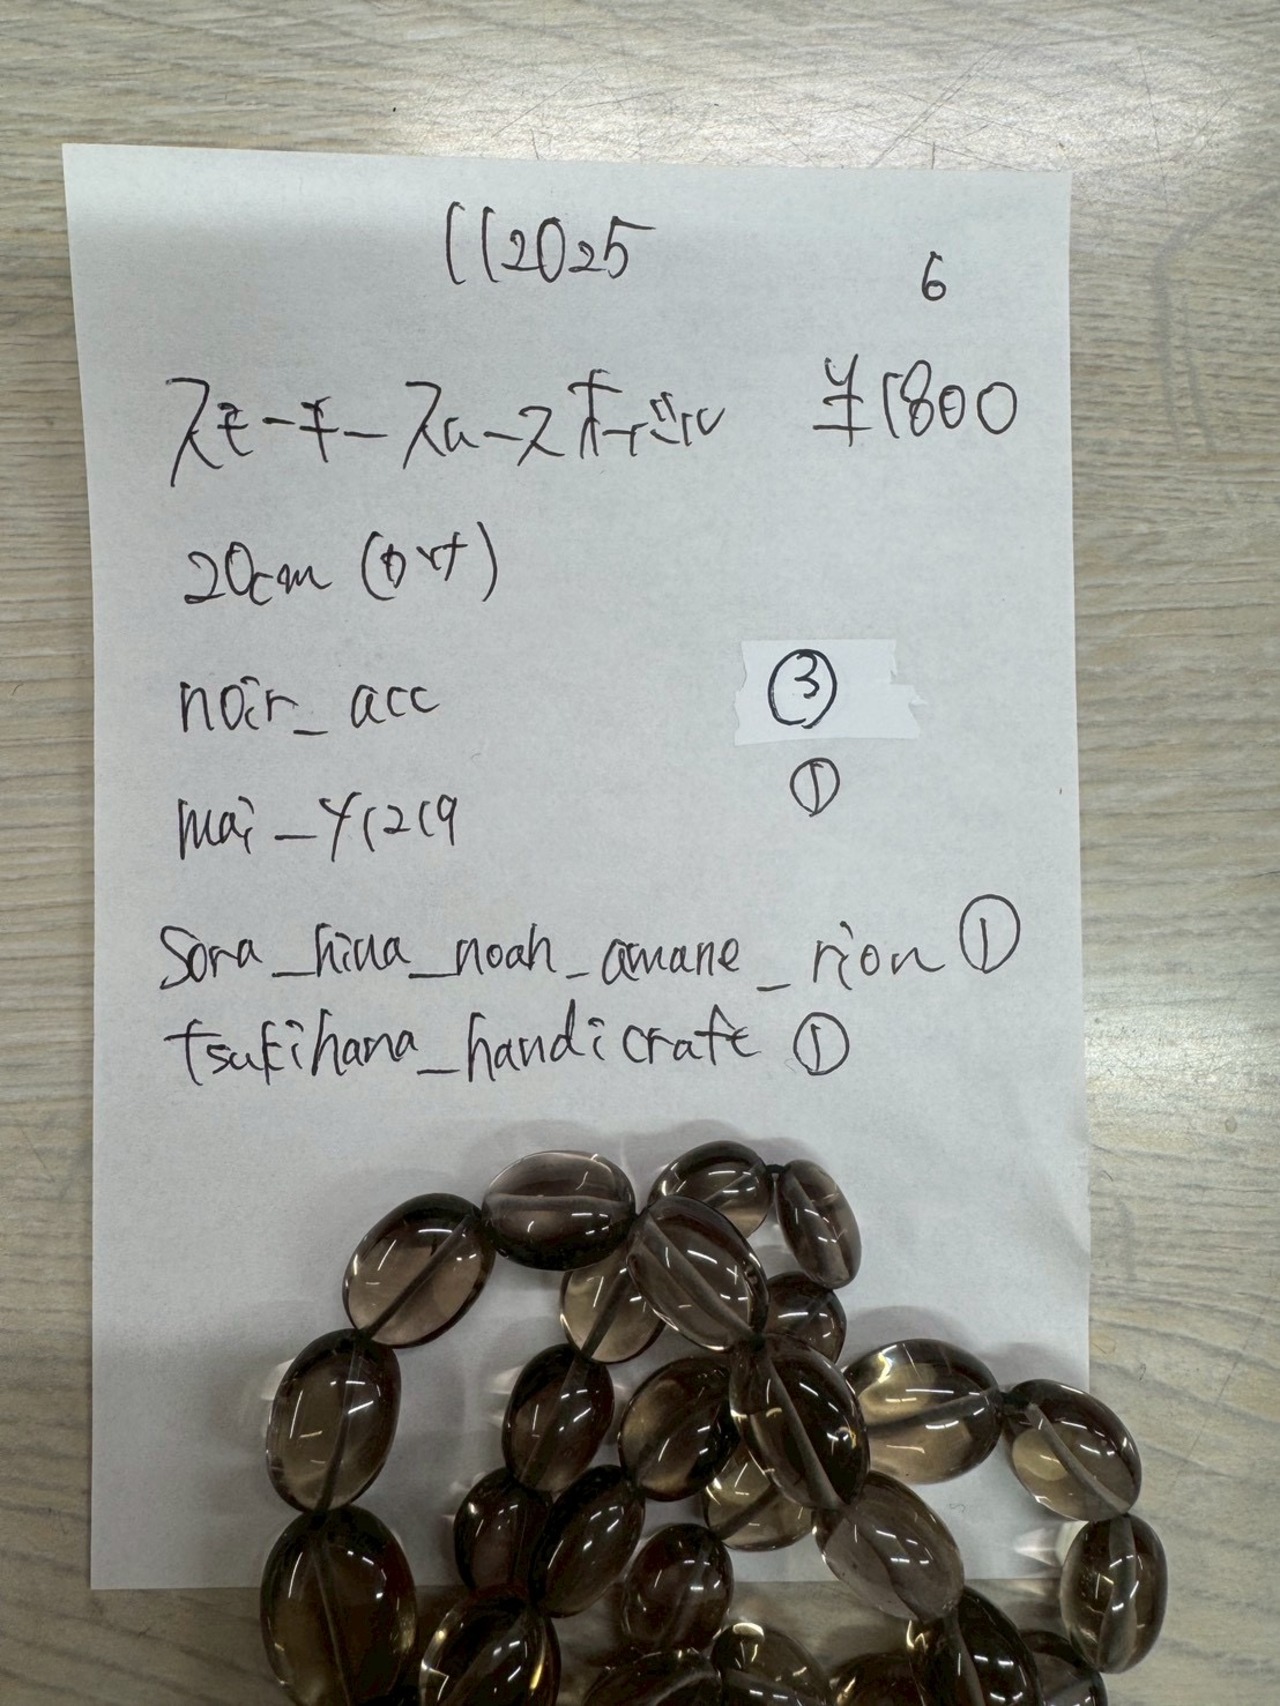 112025
6
スモーキークォーツ オーバル ¥1800
20cm
noir_acc ③
mai_y1219 ①
sora_hina_noah_amane_rion ①
tsukihana_handicraft ①